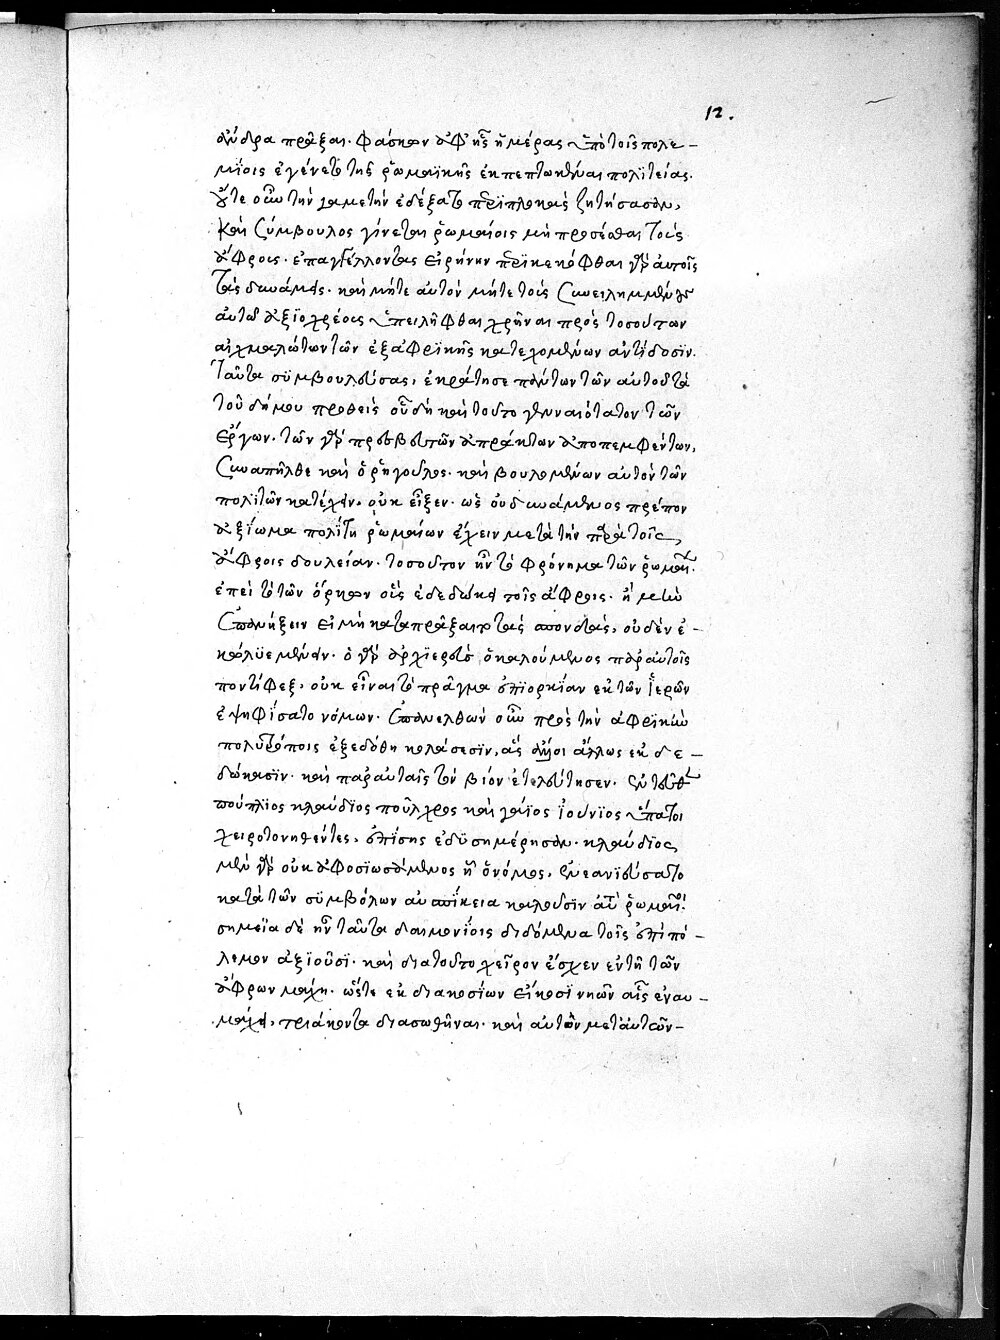 12.
ἄνδρα πρᾶξαι· φάσκων ἀφ' ἧς ἡμέρας ὑπὸ τοῖς πολε-
μίοις ἐγένετο τῆς ῥωμαϊκῆς ἐκπεπτωκέναι πολιτείας.
οὔτε οὖν τὴν γαμετὴν ἐδέξατο περιπλοκὰς ζητήσασαν,
καὶ σύμβουλος γίνεται ῥωμαίοις μὴ προσέσθαι τοὺς
ἄφρους· ἐπαγγέλλοντας εἰρήνην περικεκόφθαι γὰρ αὐτοῖς
τὰς δυνάμεις· καὶ μήτε αὐτὸν μήτε τοὺς συνειλημμένους
αὐτῶ ἀξιοχρέους ὑπειλῆφθαι χρῆναι πρὸς τοσούτων
αἰχμαλώτων τῶν ἐξ ἀφρικῆς κατεχομένων ἀντίδοσιν.
ταῦτα συμβουλεύσας, ἐκράτησε πάντων τῶν αὐτοῦ τὰ
τοῦ δήμου προθεὶς οὗ δὴ καὶ τοῦτο γενναιότατον τῶν
ἔργων. τῶν γὰρ πρεσβευτῶν ἀπράκτων ἀποπεμφέντων,
συναπῆλθε καὶ ὁ ῥήγουλος· καὶ βουλομένων αὐτὸν τῶν
πολιτῶν κατέχειν, οὐκ εἶξεν· ὡς οὐ δυνάμενος πρέπον
ἀξίωμα πολίτη ῥωμαίων ἔχειν μετὰ τὴν παρὰ τοῖς
ἄφροις δουλείαν. τοσοῦτον ἦν τὸ φρόνημα τῶν ῥωμαίων.
ἐπεὶ τὸ τῶν ὅρκων οἷς ἐδεδώκει τοῖς ἄφροις· ἦ μὴν
ἐπανήξειν εἰ μὴ καταπράξαιτο τὰς σπονδὰς, οὐδὲν ἐ-
κώλυε μένειν. ὁ γὰρ ἀρχιερεὺς ὁ καλούμενος παρ' αὐτοῖς
ποντίφεξ, οὐκ εἶναι τὸ πρᾶγμα ἐπιορκίαν ἐκ τῶν ἱερῶν
ἐψηφίσατο νόμων. ἐπανελθὼν οὖν πρὸς τὴν ἀφρικὴν
πολυτρόποις ἐξεδόθη κολάσεσιν, ἃς ἄλλοι ἄλλως ἐκδε-
δώκασιν. καὶ παρ' αὐταῖς τὸν βίον ἐτελεύτησεν. ἐντεῦθεν
πούπλιος κλαύδιος ποῦλχρος καὶ γάϊος ἰούνιος ὕπατοι
χειροτονηθέντες, ἐπίσης ἐδυσημέρησαν. κλαύδιος
μὲν γὰρ οὐκ ἀφοσιωσάμενος ἧ ὁ νόμος, ἐνεανιεύσατο
κατὰ τῶν συμβόλων ἃ αὐσπίκεια καλοῦσιν αὐτὰ ῥωμαῖοι.
σημεῖα δὲ ἦν ταῦτα δαιμονίοις διδόμενα τοῖς ἐπὶ πό-
λεμον ἀξιοῦσι. καὶ διὰ τοῦτο χεῖρον ἔσχεν ἐν τῇ τῶν
ἄφρων μάχη. ὥστε ἐκ διακοσίων εἴκοσι νηῶν αἷς ἐναυ-
μάχει, τριάκοντα διασωθῆναι. καὶ αὐτῶν μετ' αὐτῶν-